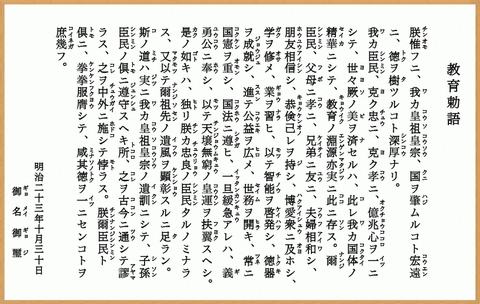 教育勅語
朕惟フニ、我カ皇祖皇宗、国ヲ肇ムルコト宏遠
ニ、徳ヲ樹ツルコト深厚ナリ。
我カ臣民、克ク忠ニ、克ク孝ニ、億兆心ヲ一ニ
シテ、世々厥ノ美ヲ済セルハ、此レ我カ国体ノ
精華ニシテ、教育ノ淵源亦実ニ此ニ存ス。爾
臣民、父母ニ孝ニ、兄弟ニ友ニ、夫婦相和シ、
朋友相信シ、恭倹己レヲ持シ、博愛衆ニ及ホシ、
学ヲ修メ、業ヲ習ヒ、以テ智能ヲ啓発シ、徳器
ヲ成就シ、進テ公益ヲ広メ、世務ヲ開キ、常ニ
国憲ヲ重シ、国法ニ遵ヒ、一旦緩急アレハ、義
勇公ニ奉シ、以テ天壌無窮ノ皇運ヲ扶翼スヘシ。
是ノ如キハ、独リ朕カ忠良ノ臣民タルノミナラ
ス、又以テ爾祖先ノ遺風ヲ顕彰スルニ足ラン。
斯ノ道ハ、実ニ我カ皇祖皇宗ノ遺訓ニシテ、子孫
臣民ノ倶ニ遵守スヘキ所、之ヲ古今ニ通シテ謬
ラス、之ヲ中外ニ施シテ悖ラス。朕爾臣民ト
倶ニ、拳拳服膺シテ、咸其徳ヲ一ニセンコトヲ
庶幾フ。
明治二十三年十月三十日
御名御璽